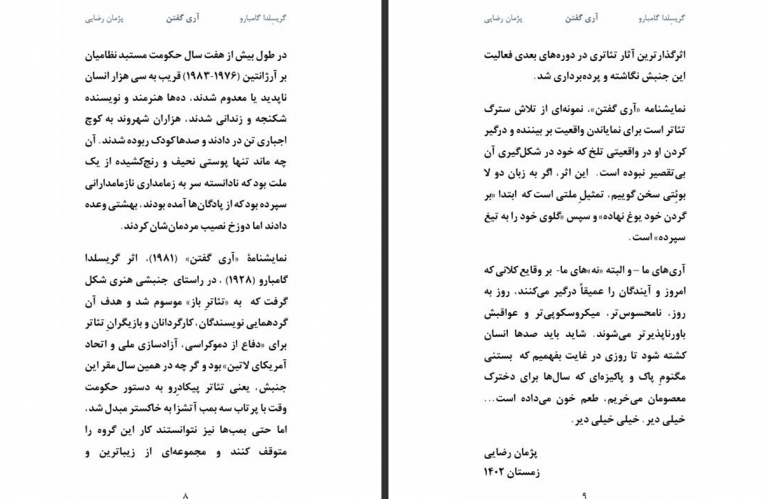 گریسلدا گامبارو آری گفتن پژمان رضایی
در طول بیش از هفت سال حکومت مستبد نظامیان
بر آرژانتین (۱۹۷۶-۱۹۸۳) قریب به سی هزار انسان
ناپدید یا معدوم شدند، ده‌ها هنرمند و نویسنده
شکنجه و زندانی شدند، هزاران شهروند به کوچ
اجباری تن در دادند و صدها کودک ربوده شدند. آن
چه ماند تنها پوستی نحیف و رنج‌کشیده از یک
ملت بود که نادانسته سر به زمامداری نازمامدارانی
سپرده بود که از پادگان‌ها آمده بودند، بهشتی وعده
دادند اما دوزخ نصیب مردمان‌شان کردند.
نمایشنامهٔ «آری گفتن» (۱۹۸۱)، اثر گریسلدا
گامبارو (۱۹۲۸) ، در راستای جنبشی هنری شکل
گرفت که به «تئاترِ باز» موسوم شد و هدف آن
گردهمایی نویسندگان، کارگردانان و بازیگرانِ تئاتر
برای «دفاع از دموکراسی، آزادسازی ملی و اتحاد
آمریکای لاتین» بود و گر چه در همین سال مقر این
جنبش، یعنی تئاتر پیکادِرو به دستور حکومت
وقت با پرتاب سه بمب آتشزا به خاکستر مبدل شد،
اما حتی بمب‌ها نیز نتوانستند کار این گروه را
متوقف کنند و مجموعه‌ای از زیباترین و
۸
گریسلدا گامبارو آری گفتن پژمان رضایی
اثرگذارترین آثار تئاتری در دوره‌های بعدی فعالیت
این جنبش نگاشته و پرده‌برداری شد.
نمایشنامه «آری گفتن»، نمونه‌ای از تلاش سترگ
تئاتر است برای نمایاندن واقعیت بر بیننده و درگیر
کردن او در واقعیتی تلخ که خود در شکل‌گیری آن
بی‌تقصیر نبوده است. این اثر، اگر به زبان دو لا
بوئِتی سخن گوییم، تمثیلِ ملتی است که ابتدا «بر
گردن خود یوغ نهاده» و سپس «گلوی خود را به تیغ
سپرده» است.
آری‌های ما – و البته «نه»های ما- بر وقایع کلانی که
امروز و آیندگان را عمیقاً درگیر می‌کنند، روز به
روز، نامحسوس‌تر، میکروسکوپی‌تر و عواقبش
باورناپذیرتر می‌شوند. شاید باید صدها انسان
کشته شود تا روزی در غایت بفهمیم که بستنی
مگنوم پاک و پاکیزه‌ای که سال‌ها برای دخترک
معصومان می‌خریم، طعم خون می‌داده است...
خیلی دیر، خیلی خیلی دیر.
پژمان رضایی
زمستان ۱۴۰۲
۹